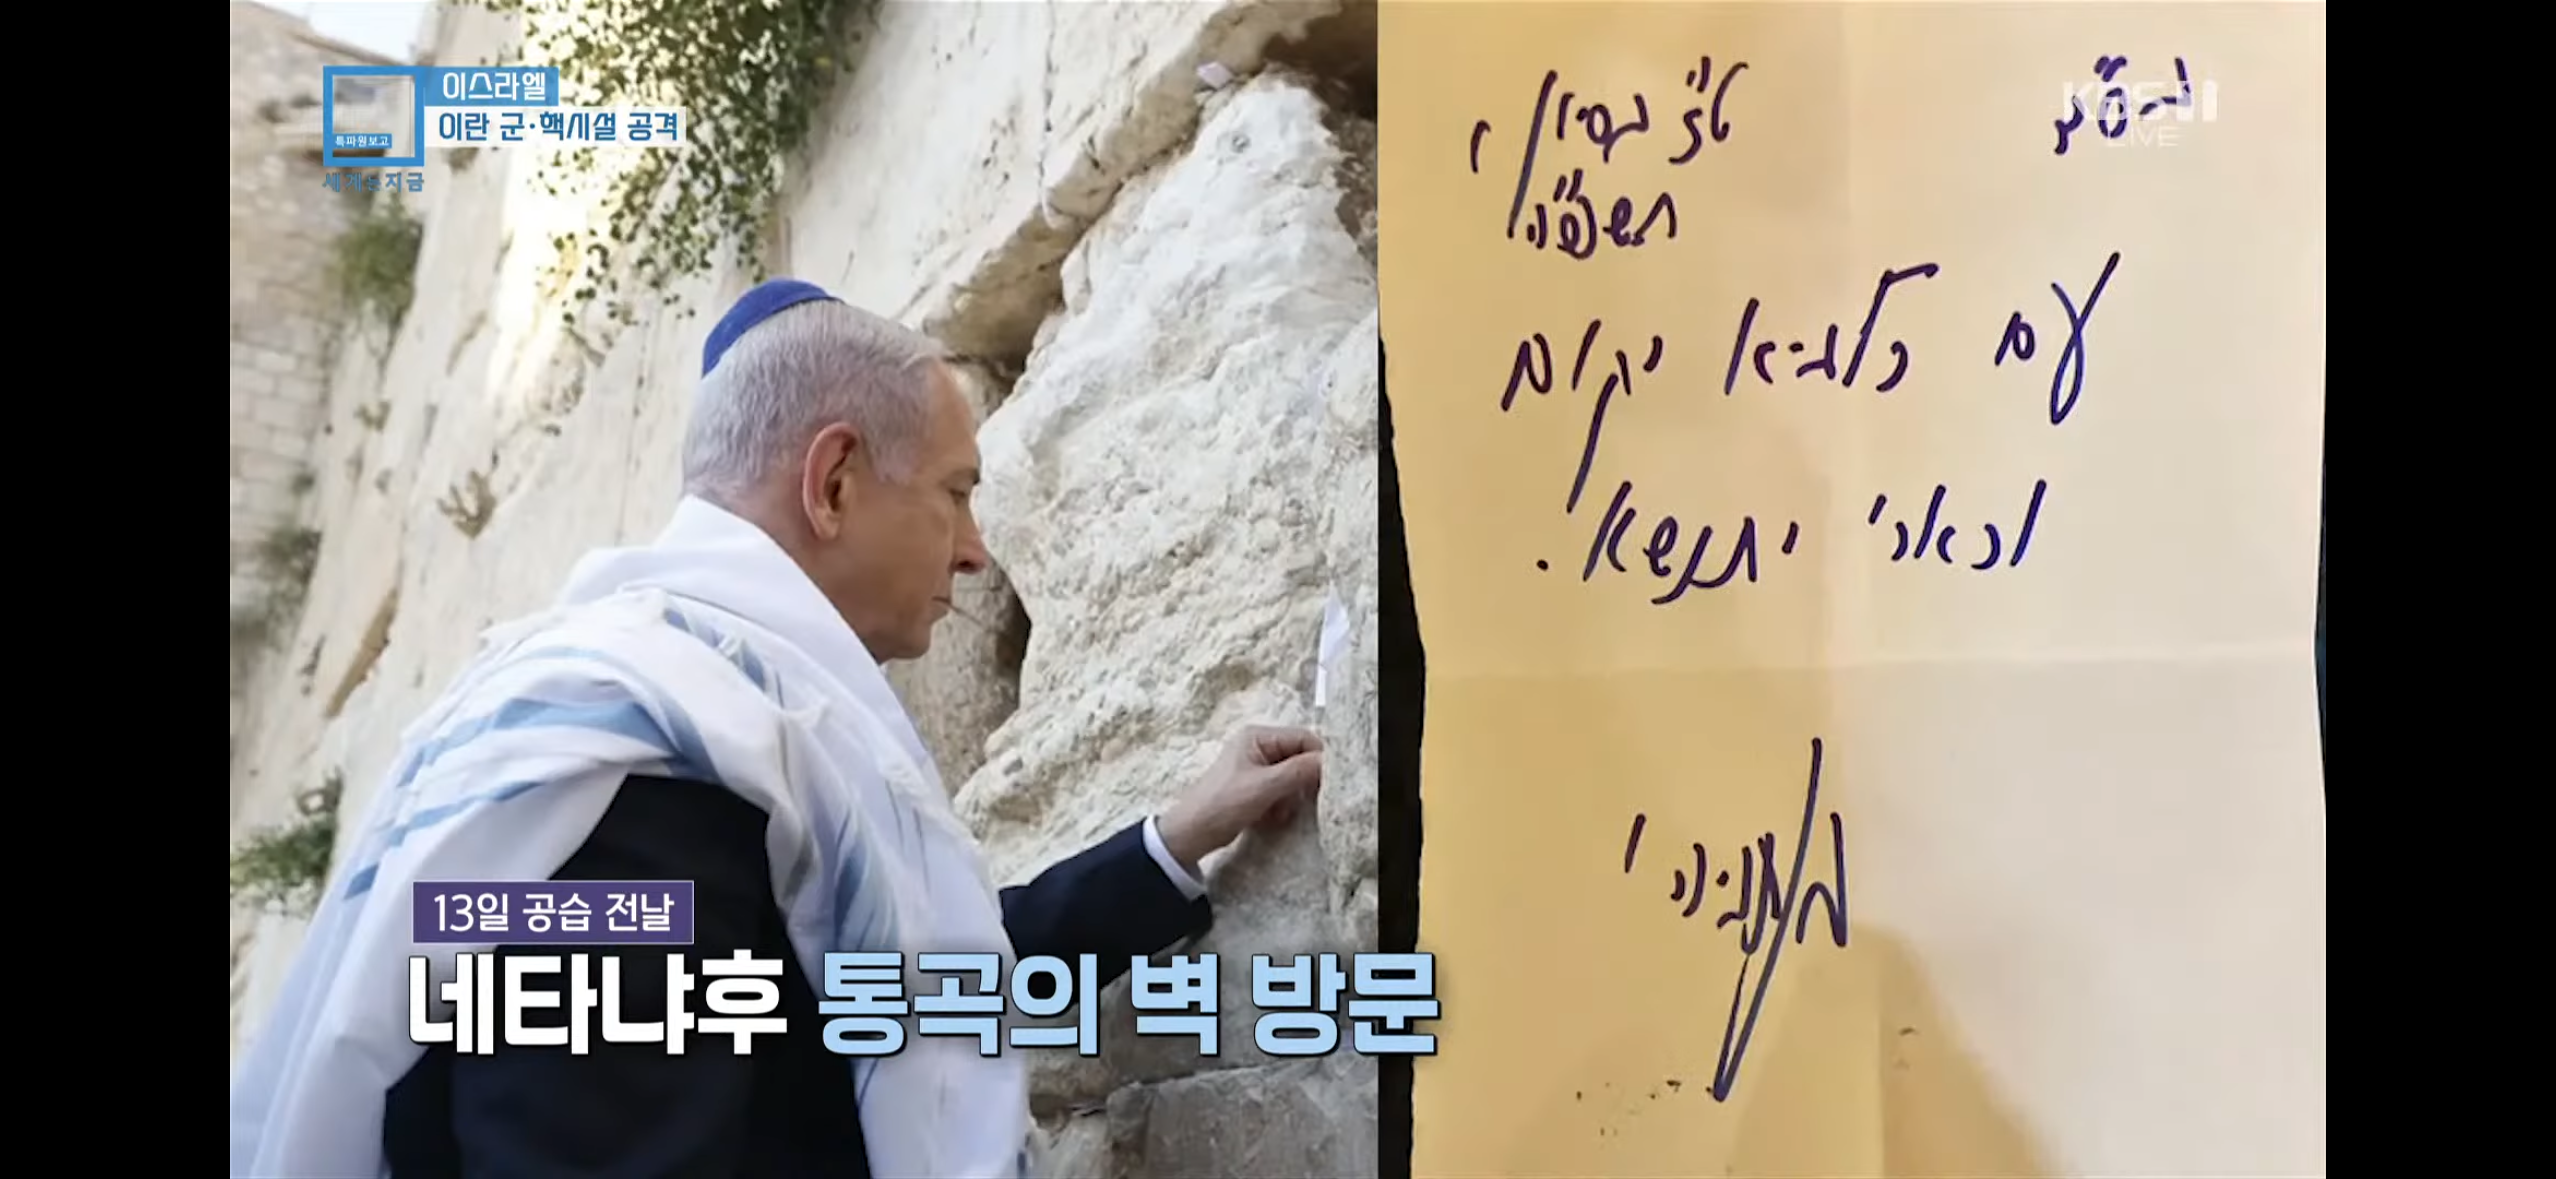 이스라엘
이란 군·핵시설 공격
특파원보고
세계는지금
KBS 1
LIVE
בס"ד
ט"ז בסיון
תשפ"ה
עם כלביא יקום
וכארי יתנשא.
13일 공습 전날
네타냐후 통곡의 벽 방문